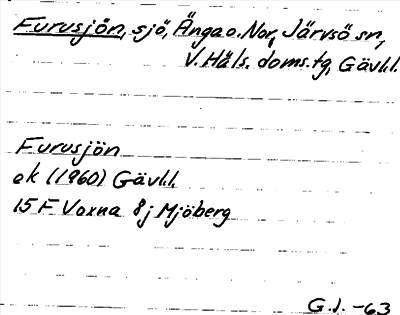 Furusjön, sjö, Änga o. Nor, Järvsö sn,
V. Häls. doms.tg, Gävl.l.
Furusjön
ek (1960) Gävl.l.
15 F Voxna 8j Mjöberg
G.J. -63